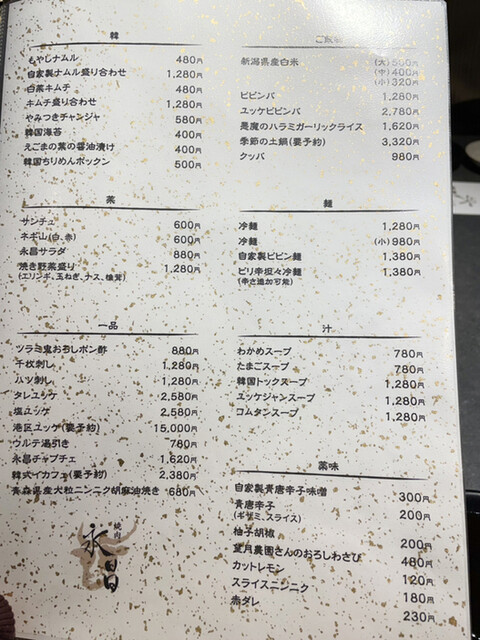 韓
もやしナムル 480円
自家製ナムル盛り合わせ 1,280円
白菜キムチ 480円
キムチ盛り合わせ 1,280円
やみつきチャンジャ 580円
韓国海苔 400円
えごまの葉の醤油漬け 400円
韓国ちりめんポックン 500円
菜
サンチュ 600円
ネギ山(白、赤) 600円
永昌サラダ 880円
焼き野菜盛り 1,280円
(エリンギ、玉ねぎ、ナス、椎茸)
一品
ツラミ鬼おろしポン酢 880円
千枚刺し 1,280円
ハツ刺し 1,280円
タレユッケ 2,580円
塩ユッケ 2,580円
港区ユッケ(要予約) 15,000円
ウルテ湯引き 780円
永昌チャプチェ 1,620円
韓式イカフェ(要予約) 2,380円
青森県産大粒ニンニク胡麻油焼き 680円
焼肉
永昌
ご飯
新潟県産白米 (大)500円
(中)400円
(小)320円
ビビンバ 1,280円
ユッケビビンバ 2,780円
悪魔のハラミガーリックライス 1,620円
季節の土鍋(要予約) 3,320円
クッパ 980円
麺
冷麺 1,280円
冷麺 (小)980円
自家製ビビン麺 1,380円
ピリ辛坦々冷麺 1,380円
(辛さ追加可能)
汁
わかめスープ 780円
たまごスープ 780円
韓国トックスープ 1,280円
ユッケジャンスープ 1,280円
コムタンスープ 1,280円
薬味
自家製青唐辛子味噌 300円
青唐辛子 200円
(キザミ、スライス)
柚子胡椒 200円
望月農園さんのおろしわさび 480円
カットレモン 120円
スライスニンニク 180円
赤ダレ 230円